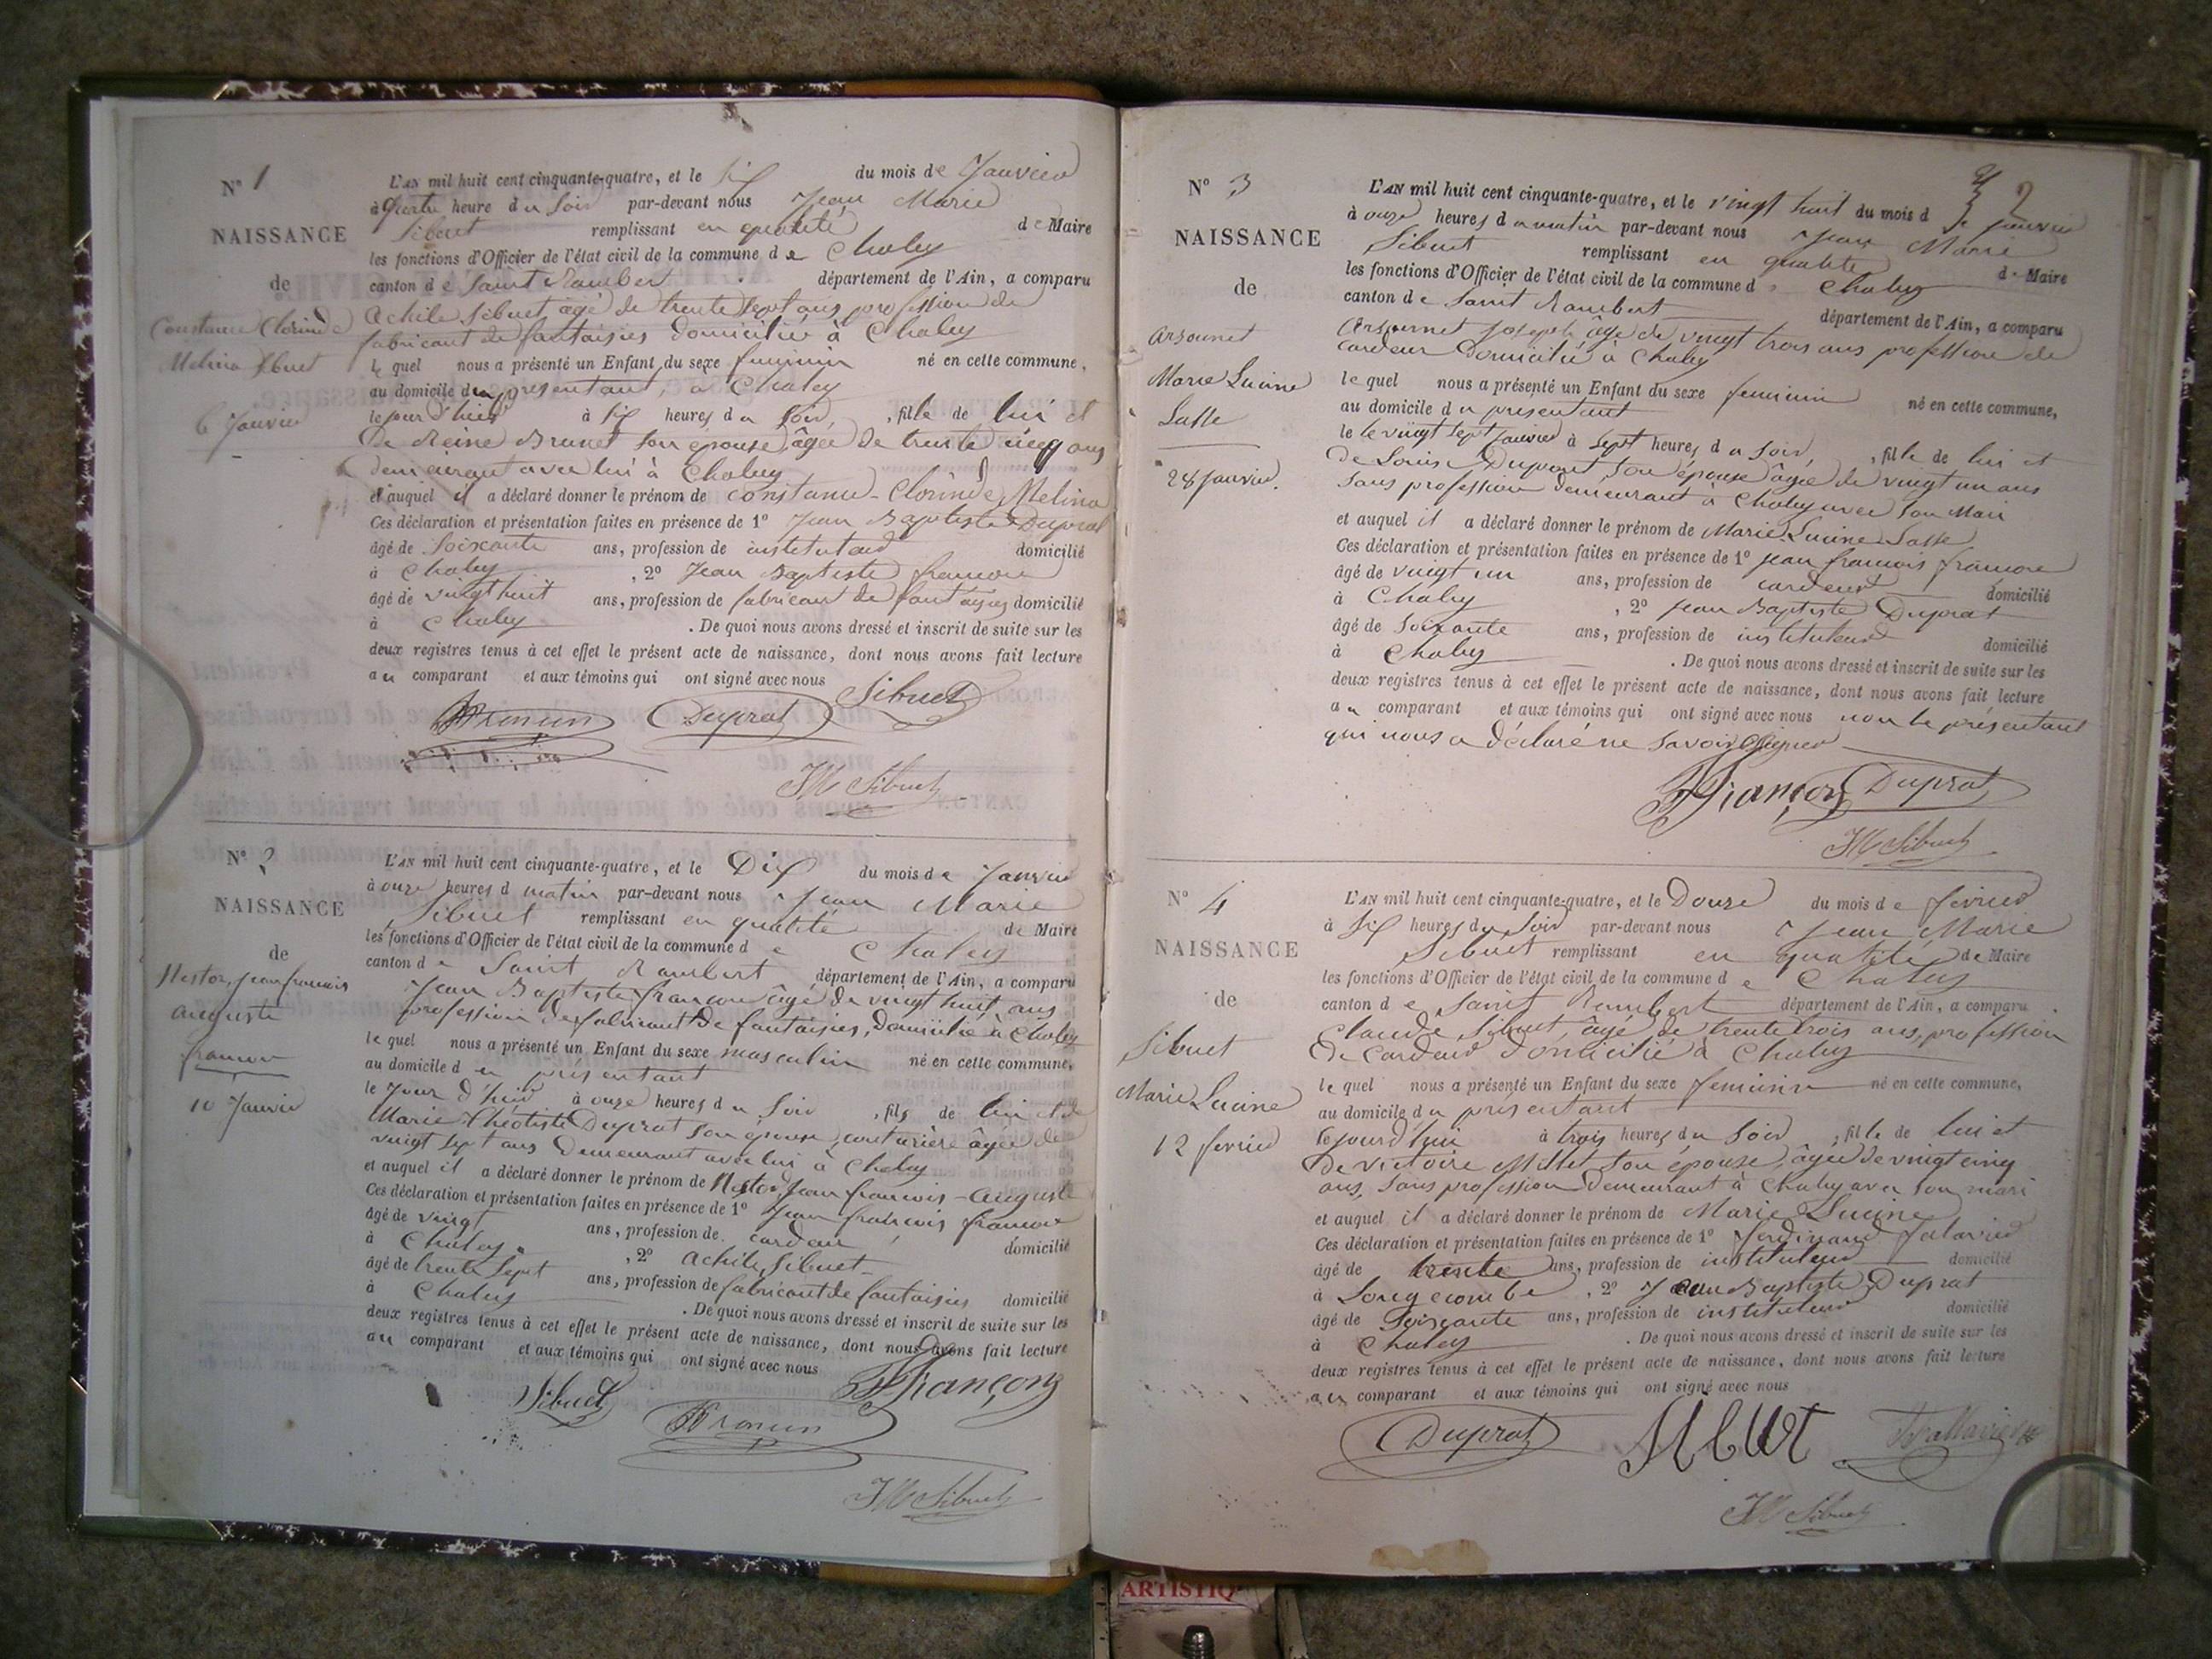 N° 1
NAISSANCE
de
Constance Clorinde
Melina Sibuet
6 Janvier
L'AN mil huit cent cinquante-quatre, et le six du mois de Janvier
à quatre heure du soir par-devant nous Jean Marie
Sibuet remplissant en qualité de Maire
les fonctions d'Officier de l'état civil de la commune de Chaley
canton de Saint Rambert département de l'Ain, a comparu
Achile Sibuet, âgé de trente sept ans profession de
fabricant de fantaisies domicilié à Chaley
le quel nous a présenté un Enfant du sexe feminin né en cette commune,
au domicile du présentant, à Chaley
le jour d'hier à six heures du soir, fille de lui et
De Reine Brunet son épouse, âgée de trente cinq ans
demeurant avec lui à Chaley
et auquel il a déclaré donner le prénom de Constance-Clorinde Melina
Ces déclaration et présentation faites en présence de 1° Jean Baptiste Duprat
âgé de soixante ans, profession de instituteur domicilié
à Chaley, 2° Jean Baptiste françon
âgé de vingt huit ans, profession de fabricant de fantaisies domicilié
à Chaley. De quoi nous avons dressé et inscrit de suite sur les
deux registres tenus à cet effet le présent acte de naissance, dont nous avons fait lecture
au comparant et aux témoins qui ont signé avec nous
Duprat Sibuet
JM Sibuet
N° 2
NAISSANCE
de
Nestor, jean francois
auguste
françon
10 Janvier
L'AN mil huit cent cinquante-quatre, et le Dix du mois de Janvier
à onze heures d matin par-devant nous Jean Marie
Sibuet remplissant en qualité de Maire
les fonctions d'Officier de l'état civil de la commune de Chaley
canton de Saint Rambert département de l'Ain, a comparu
Jean Baptiste françon âgé de vingt huit ans
profession de fabricant de fantaisies, domicilié à Chaley
le quel nous a présenté un Enfant du sexe masculin né en cette commune,
au domicile du présentant
le Jour d'hier à onze heures du soir, fils de lui et de
Marie Théotiste Duprat son épouse, couturière âgée de
vingt sept ans demeurant avec lui à Chaley
et auquel il a déclaré donner le prénom de Nestor, Jean francois-auguste
Ces déclaration et présentation faites en présence de 1° Jean francois françon
âgé de vingt ans, profession de cardeur domicilié
à Chaley, 2° Achile Sibuet
âgé de trente sept ans, profession de fabricant de fantaisies domicilié
à Chaley. De quoi nous avons dressé et inscrit de suite sur les
deux registres tenus à cet effet le présent acte de naissance, dont nous avons fait lecture
au comparant et aux témoins qui ont signé avec nous
Sibuet françon
JM Sibuet
N° 3
NAISSANCE
de
Arsounet
Marie Lucine
Lasse
28 janvier.
2
L'AN mil huit cent cinquante-quatre, et le vingt huit du mois de janvier
à onze heures d u matin par-devant nous Jean Marie
Sibuet remplissant en qualité de Maire
les fonctions d'Officier de l'état civil de la commune d Chaley
canton de Saint Rambert département de l'Ain, a comparu
Arsounet joseph âgé de vingt trois ans profession de
cardeur domicilié à Chaley
le quel nous a présenté un Enfant du sexe feminin né en cette commune,
au domicile du présentant
le le vingt sept janvier à sept heures du soir, fille de lui et
de Louise Dupont, son épouse âgée de vingt un ans
sans profession demeurant à Chaley avec son Mari
et auquel il a déclaré donner le prénom de Marie Lucine Lasse
Ces déclaration et présentation faites en présence de 1° jean francois françon
âgé de vingt un ans, profession de cardeur domicilié
à Chaley, 2° jean Baptiste Duprat
âgé de soixante ans, profession de instituteur domicilié
à Chaley. De quoi nous avons dressé et inscrit de suite sur les
deux registres tenus à cet effet le présent acte de naissance, dont nous avons fait lecture
au comparant et aux témoins qui ont signé avec nous non le présentant
qui nous a déclaré ne savoir signer
françon Duprat
JM Sibuet
N° 4
NAISSANCE
de
Sibuet
Marie Lucine
12 fevrier
L'AN mil huit cent cinquante-quatre, et le Douze du mois de fevrier
à six heures du soir par-devant nous Jean Marie
Sibuet remplissant en qualité de Maire
les fonctions d'Officier de l'état civil de la commune de Chaley
canton de Saint Rambert département de l'Ain, a comparu
Claude Sibuet, âgé de trente trois ans, profession
De cardeur domicilié à Chaley
le quel nous a présenté un Enfant du sexe feminin né en cette commune,
au domicile du présentant
le jourd'hui à trois heures du soir, fille de lui et
De victoire Millet son épouse, âgée de vingt cinq
ans, sans profession demeurant à Chaley avec son mari
et auquel il a déclaré donner le prénom de Marie Lucine
Ces déclaration et présentation faites en présence de 1° ferdinand
âgé de trente ans, profession de instituteur domicilié
à Longecombe, 2° Jean Baptiste Duprat
âgé de soixante ans, profession de instituteur domicilié
à Chaley. De quoi nous avons dressé et inscrit de suite sur les
deux registres tenus à cet effet le présent acte de naissance, dont nous avons fait lecture
au comparant et aux témoins qui ont signé avec nous
Duprat Sibuet
JM Sibuet
ARTISTIQ